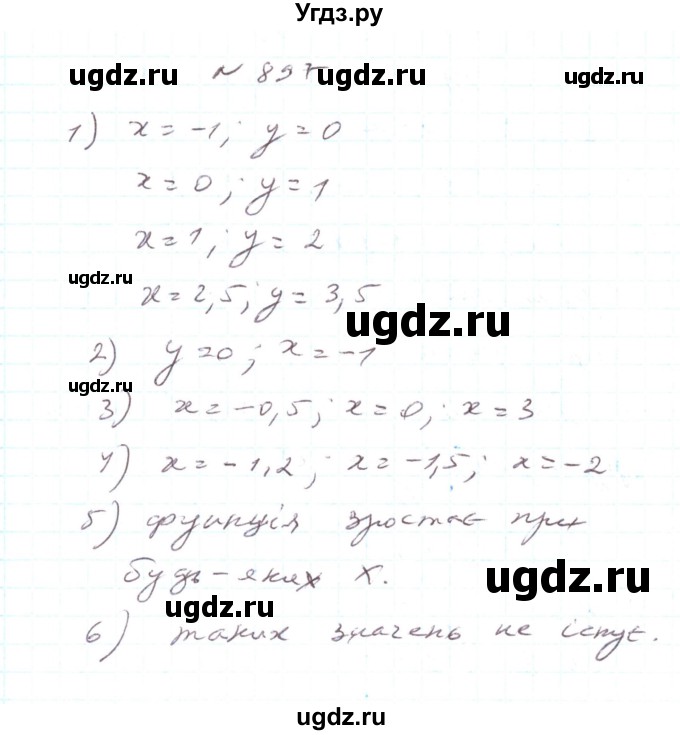 Угдз.ру
ugdz.ru № 897 ugdz.ru ugdz.ru
1) x = -1; y = 0
x = 0; y = 1
x = 1; y = 2
ugdz.ru
x = 2,5; y = 3,5
ugdz.ru
2) y = 0; x = -1
ugdz.ru
3) x = -0,5; x = 0; x = 3
4) x = -1,2; x = -1,5; x = -2
5) функція зростає при
будь-яких x.
ugdz.ru
ugdz.ru
6) таких значень не існує.
ugdz.ru